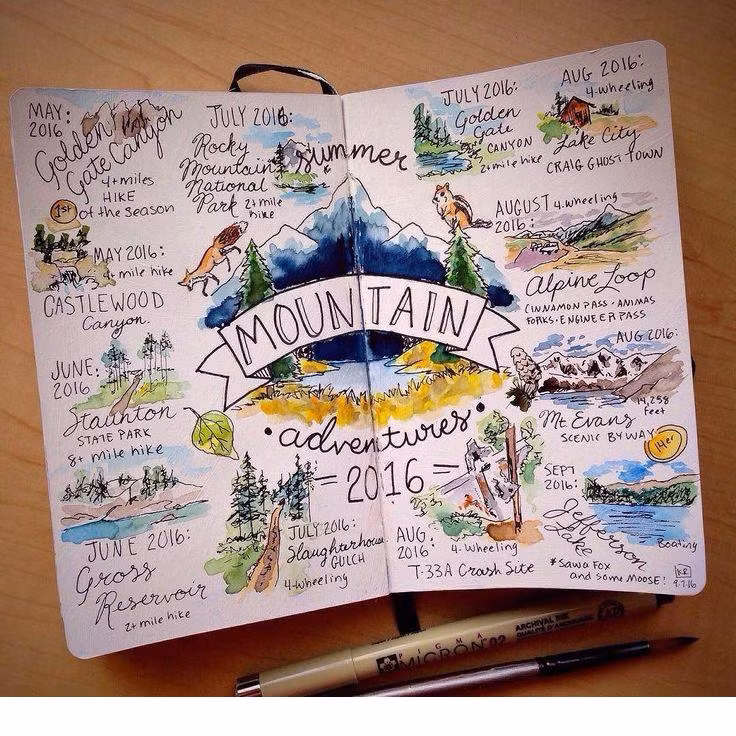 MAY:
2016
Golden
Gate Canyon
4+ miles
HIKE
of the season
1st
MAY 2016:
4+ mile hike
CASTLEWOOD
Canyon.
JUNE:
2016
Staunton
STATE PARK
8+ mile hike
JUNE 2016:
Gross
Reservoir
2+ mile hike
JULY 2016:
Rocky
Mountain
National
Park 2+ mile
hike
summer
MOUNTAIN
adventures
=2016=
JULY 2016:
Slaughterhouse
GULCH
4-wheeling
JULY 2016:
Golden
Gate
CANYON
2+ mile hike
AUG 2016:
4-wheeling
Lake City
CRAIG GHOST TOWN
AUGUST 4-wheeling
2016:
Alpine Loop
CINNAMON PASS · ANIMAS
FORKS · ENGINEER PASS
AUG 2016:
14,258
feet
Mt. Evans
SCENIC BYWAY
14er
SEPT
2016:
Jefferson
Lake
Boating
* Saw a FOX
and some MOOSE!
KR
9.7.16
AUG
2016:
4-Wheeling
T-33A Crash Site
PIGMA
MICRON 02
ARCHIVAL INK
QUALITÉ D'ARCHIVAGE
AP